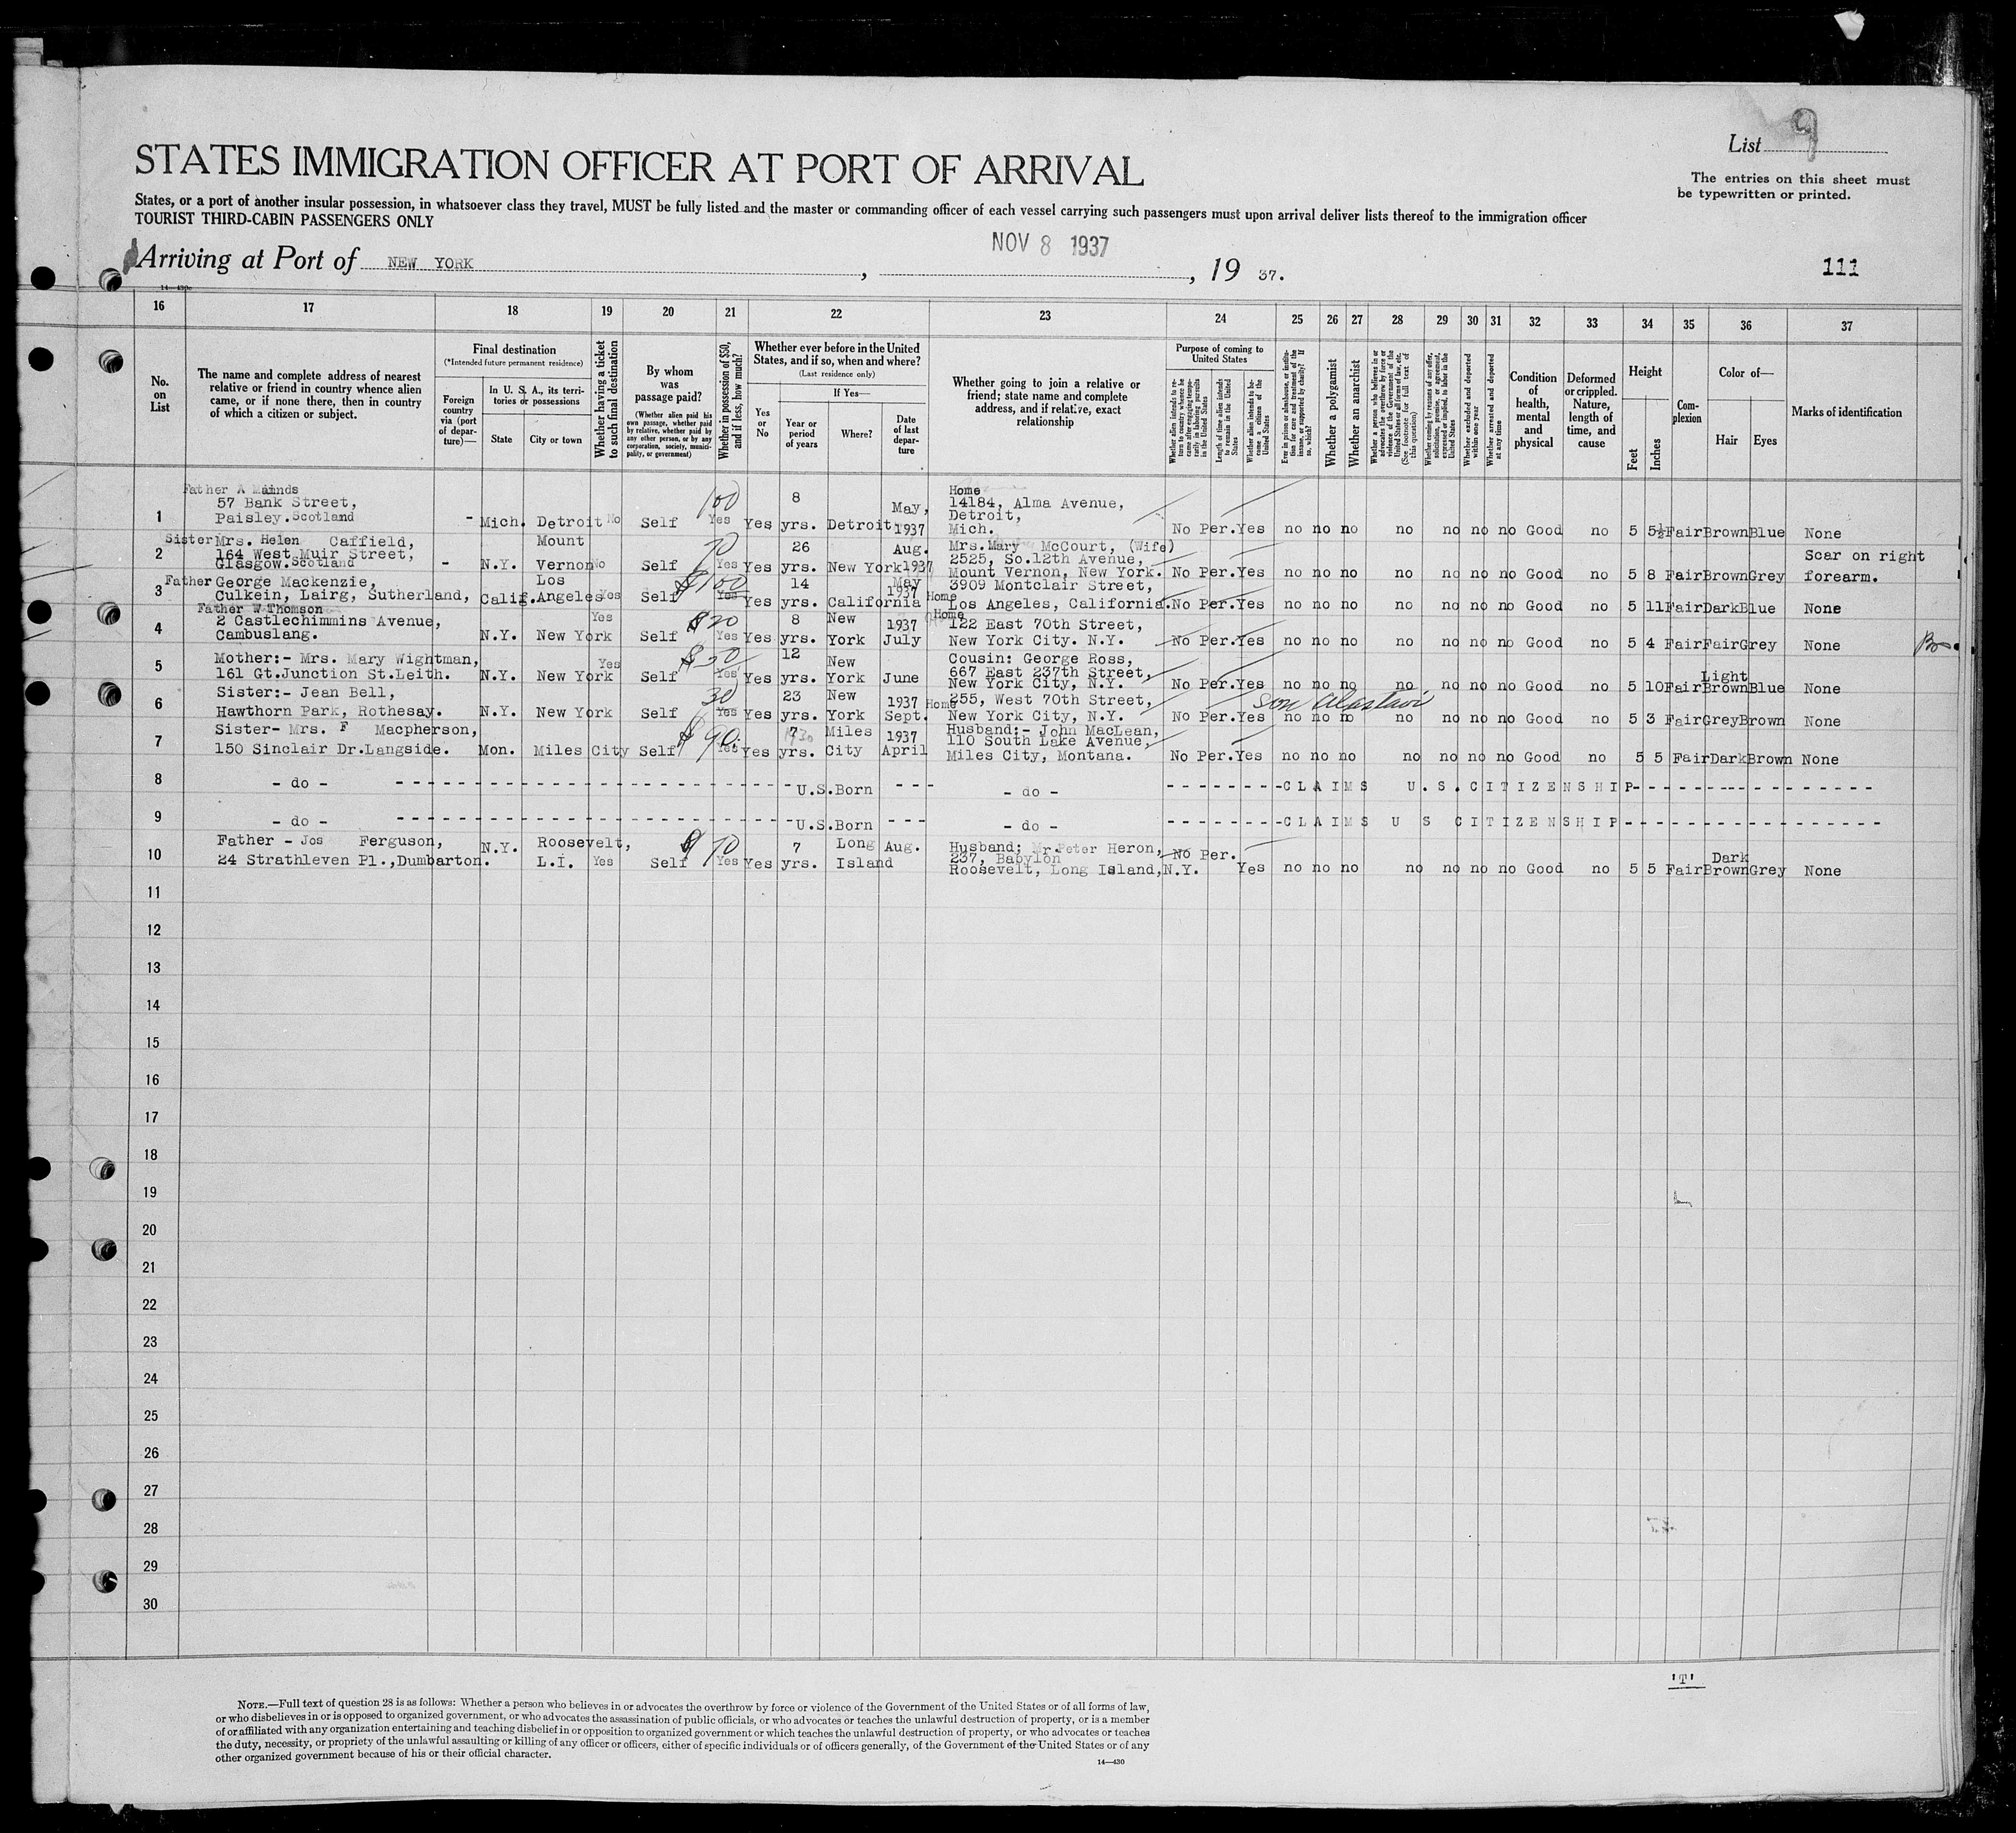 List 9
STATES IMMIGRATION OFFICER AT PORT OF ARRIVAL
The entries on this sheet must
be typewritten or printed.
States, or a port of another insular possession, in whatsoever class they travel, MUST be fully listed and the master or commanding officer of each vessel carrying such passengers must upon arrival deliver lists thereof to the immigration officer
TOURIST THIRD-CABIN PASSENGERS ONLY
NOV 8 1937
Arriving at Port of NEW YORK, , 19 37.
111
14—430
16 17 18 19 20 21 22 23 24 25 26 27 28 29 30 31 32 33 34 35 36 37
No. on List
The name and complete address of nearest relative or friend in country whence alien came, or if none there, then in country of which a citizen or subject.
Final destination
(*Intended future permanent residence)
Foreign country via (port of departure)—
In U. S. A., its territories or possessions
State
City or town
Whether having a ticket to such final destination
By whom was passage paid?
(Whether alien paid his own passage, whether paid by relative, whether paid by any other person, or by any corporation, society, municipality, or government)
Whether in possession of $50, and if less, how much?
Whether ever before in the United States, and if so, when and where?
(Last residence only)
Yes or No
If Yes—
Year or period of years
Where?
Date of last departure
Whether going to join a relative or friend; state name and complete address, and if relative, exact relationship
Purpose of coming to United States
Whether alien intends to return to country whence he came after engaging temporarily in laboring pursuits in the United States
Length of time alien intends to remain in the United States
Whether alien intends to become a citizen of the United States
Ever in prison or almshouse, or institution for care and treatment of the insane, or supported by charity? If so, which?
Whether a polygamist
Whether an anarchist
Whether a person who believes in or advocates the overthrow by force or violence of the Government of the United States or all forms of law, etc. (See footnote for full text of this question)
Whether coming by reasons of any offer, solicitation, promise, or agreement, expressed or implied, to labor in the United States
Whether excluded and deported within one year
Whether arrested and deported at any time
Condition of health, mental and physical
Deformed or crippled. Nature, length of time, and cause
Height
Feet
Inches
Complexion
Color of—
Hair
Eyes
Marks of identification
Father A Mainds
1 57 Bank Street, Paisley. Scotland - Mich. Detroit No Self 100 Yes Yes 8 yrs. Detroit May, 1937 Home 14184, Alma Avenue, Detroit, Mich. No Per. Yes no no no no no no no Good no 5 5½ Fair Brown Blue None
2 Sister Mrs. Helen Caffield, 164 West Muir Street, Glasgow. Scotland - N.Y. Mount Vernon No Self 70 Yes Yes 26 yrs. New York Aug. 1937 Mrs. Mary McCourt, (Wife) 2525, So. 12th Avenue, Mount Vernon, New York. No Per. Yes no no no no no no no Good no 5 8 Fair Brown Grey Scar on right forearm.
3 Father George Mackenzie, Culkein, Lairg, Sutherland, Calif. Los Angeles Yes Self $100 Yes Yes 14 yrs. California May 1937 Home 3909 Montclair Street, Los Angeles, California. No Per. Yes no no no no no no no Good no 5 11 Fair Dark Blue None
Father W Thomson
4 2 Castlechimmins Avenue, Cambuslang. N.Y. New York Yes Self $20 Yes Yes 8 yrs. New York 1937 July Home 122 East 70th Street, New York City. N.Y. No Per. Yes no no no no no no no Good no 5 4 Fair Fair Grey None
5 Mother:- Mrs. Mary Wightman, 161 Gt. Junction St. Leith. N.Y. New York Yes Self $50 Yes Yes 12 yrs. New York June Cousin: George Ross, 667 East 237th Street, New York City, N.Y. No Per. Yes no no no no no no no Good no 5 10 Fair Light Brown Blue None
6 Sister:- Jean Bell, Hawthorn Park, Rothesay. N.Y. New York Self 30 Yes Yes 23 yrs. New York 1937 Sept. Home 255, West 70th Street, New York City, N.Y. Son Alastair No Per. Yes no no no no no no no Good no 5 3 Fair Grey Brown None
7 Sister- Mrs. F Macpherson, 150 Sinclair Dr. Langside. Mon. Miles City Self $90. Yes Yes 7 yrs. Miles City 1937 April Husband:- John MacLean, 110 South Lake Avenue, Miles City, Montana. No Per. Yes no no no no no no no Good no 5 5 Fair Dark Brown None
8 - do - U.S. Born - - - - do - CLAIMS U.S. CITIZENSHIP
9 - do - U.S. Born - - - - do - CLAIMS U S CITIZENSHIP
10 Father - Jos Ferguson, 24 Strathleven Pl., Dumbarton. N.Y. Roosevelt, L.I. Yes Self $70 Yes Yes 7 yrs. Long Island Aug. Husband; Mr. Peter Heron, 237, Babylon Roosevelt, Long Island, N.Y. No Per. Yes no no no no no no no Good no 5 5 Fair Dark Brown Grey None
11
12
13
14
15
16
17
18
19
20
21
22
23
24
25
26
27
28
29
30
'T'
NOTE.—Full text of question 28 is as follows: Whether a person who believes in or advocates the overthrow by force or violence of the Government of the United States or of all forms of law,
or who disbelieves in or is opposed to organized government, or who advocates the assassination of public officials, or who advocates or teaches the unlawful destruction of property, or is a member
of or affiliated with any organization entertaining and teaching disbelief in or opposition to organized government or which teaches the unlawful destruction of property, or who advocates or teaches
the duty, necessity, or propriety of the unlawful assaulting or killing of any officer or officers, either of specific individuals or of officers generally, of the Government of the United States or of any
other organized government because of his or their official character.
14—430